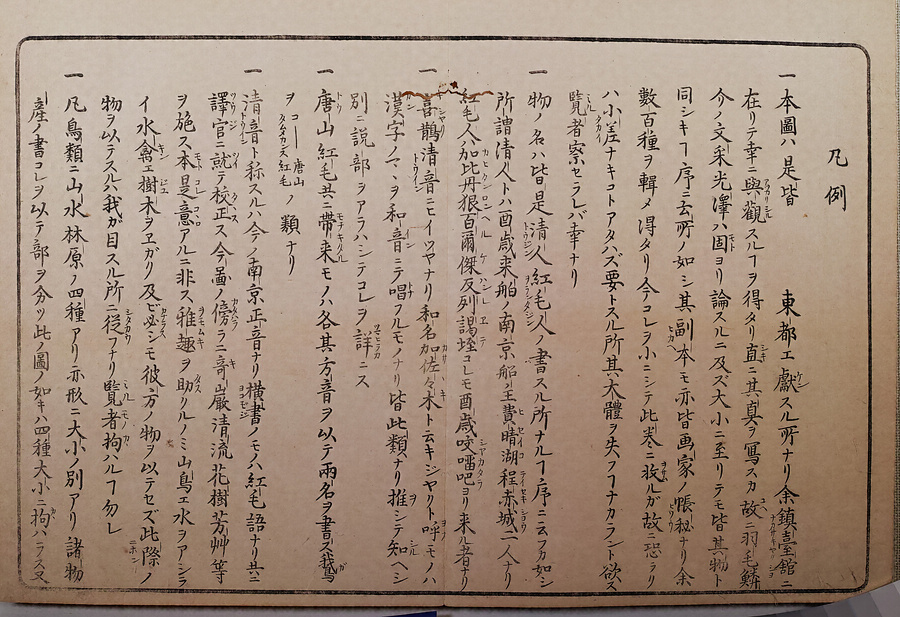 凡例
一本圖ハ是皆 東都エ獻スル所ナリ余鎮臺舘ニ
在リテ幸ニ與觀スルヿヲ得タリ直ニ其真ヲ寫スカ故ニ羽毛鱗
介ノ文采光澤ハ固ヨリ論スルニ及ズ大小ニ至リテモ皆其物ト
同シキヿ序ニ云所ノ如シ其副本モ亦皆画家ノ帳秘ナリ余
數百種ヲ輯メ得タリ今コレヲ小ニシテ此巻ニ收ルガ故ニ恐ラク
ハ小差ナキコトアタハズ要トスル所其大體ヲ失フナカラント欲ス
覧者察セラレバ幸ナリ
一 物ノ名ハ皆是清人紅毛人ノ書スル所ナルヿ序ニ云フカ如シ
所謂清人トハ酉歳来舶ノ南京船主費晴湖程赤城二人ナリ
紅毛人ハ加比丹狠百爾傑反列謁垤コレモ酉歳咬𠺕吧ヨリ来ル者ナリ
一 喜鵲清音ニヒイツヤナリ和名加佐々木ト云キシヤクト呼モノハ
漢字ノマヽヲ和音ニテ唱フルモノナリ皆此類ナリ推シテ知ヘシ
別ニ説部ヲアラハシテコレヲ詳ニス
一 唐山紅毛共ニ帶来モノハ各其方音ヲ以テ兩名ヲ書ス鵞
ヲ コー唐山 タタカ天紅毛 ノ類ナリ
一 清音ト称スルハ今ノ南京正音ナリ横書ノモハ紅毛語ナリ共ニ
譯官ニ就テ校正ス今畵ノ傍ラニ奇巖清流花樹芳艸等
ヲ施ス本是意アルニ非ス雅趣ヲ助クルノミ山鳥エ水ヲアシラ
イ水禽エ樹木ヲヱガリ及ビ必シモ彼方ノ物ヲ以テセズ此際ノ
物ヲ以テスルハ我ガ目スル所ニ從フナリ覧者拘ハルヿ勿レ
一 凡鳥類ニ山水林原ノ四種アリ亦形ニ大小ノ別アリ諸物
産ノ書コレヲ以テ部ヲ分ツ此ノ圖ノ如キハ四種大小ニ拘ハラス又